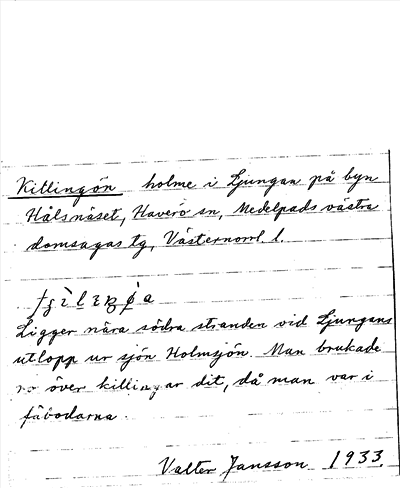 Killingön holme i Ljungan på byn
Hålsnäset, Haverö sn, Medelpads västra
domsagas tg, Västernorrl. l.
Ligger nära södra stranden vid Ljungans
utlopp ur sjön Holmsjön. Man brukade
ro över killingar dit, då man var i
fäbodarna.
Valter Jansson 1933.